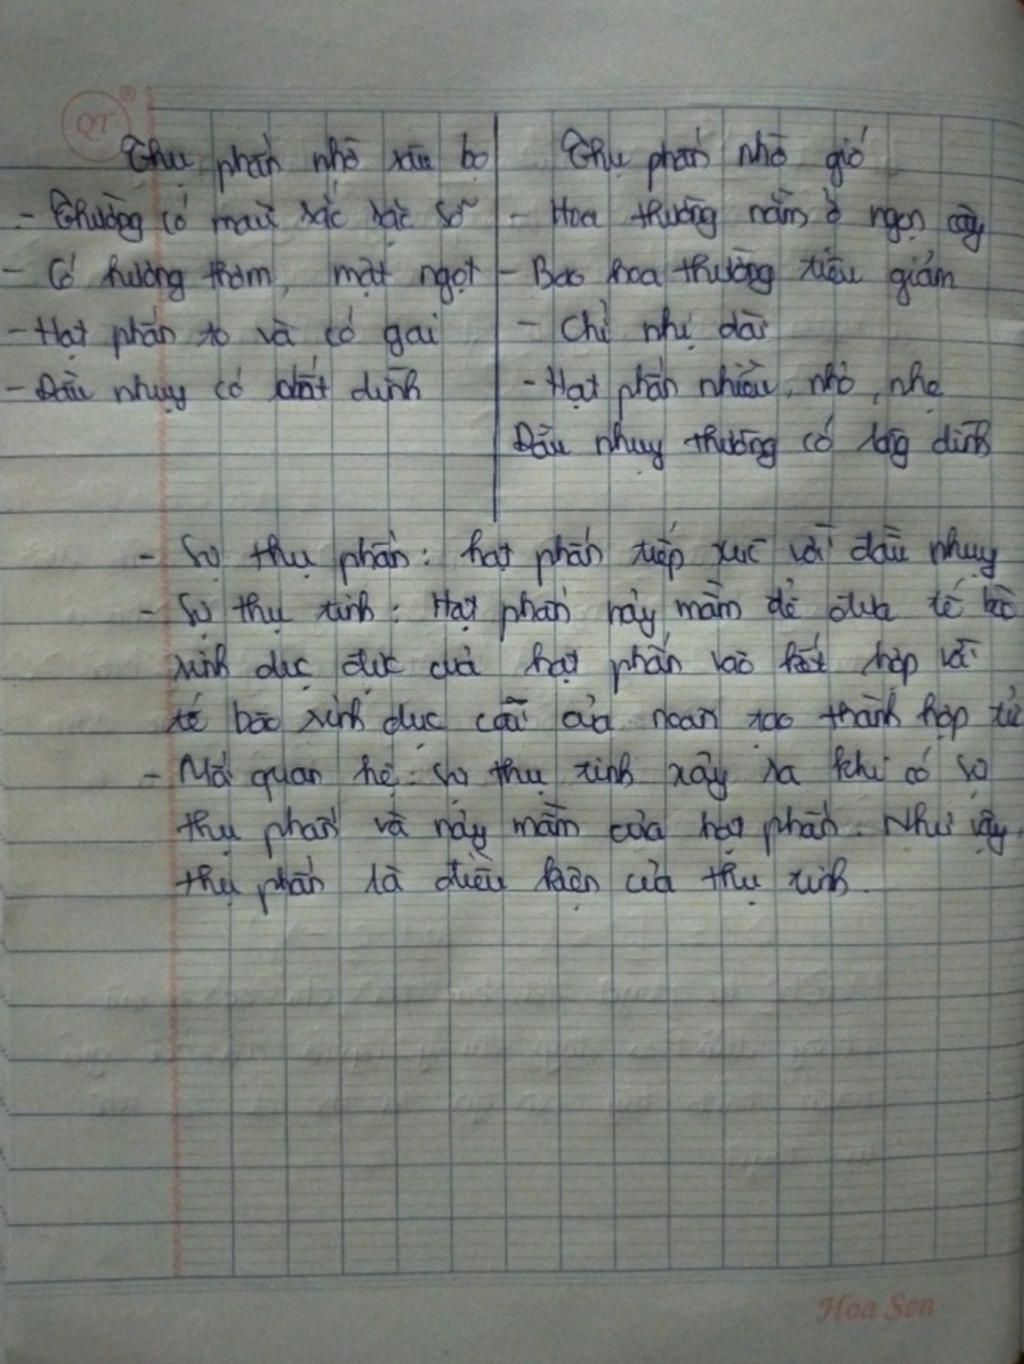 QT
Thụ phấn nhờ sâu bọ
- Thường có màu sắc sặc sỡ
- Có hương thơm, mật ngọt
- Hạt phấn to và có gai
- Đầu nhụy có chất dính
Thụ phấn nhờ gió
- Hoa thường nằm ở ngọn cây
- Bao hoa thường tiêu giảm
- Chỉ nhị dài
- Hạt phấn nhiều, nhỏ, nhẹ
Đầu nhụy thường có lông dính
- Sự thụ phấn: hạt phấn tiếp xúc với đầu nhụy
- Sự thụ tinh: Hạt phấn nảy mầm để đưa tế bào
sinh dục đực của hạt phấn vào kết hợp với
tế bào sinh dục cái của noãn tạo thành hợp tử
- Mối quan hệ: sự thụ tinh xảy ra khi có sự
thụ phấn và nảy mầm của hạt phấn. Như vậy,
thụ phấn là điều kiện của thụ tinh.
Hoa Sen